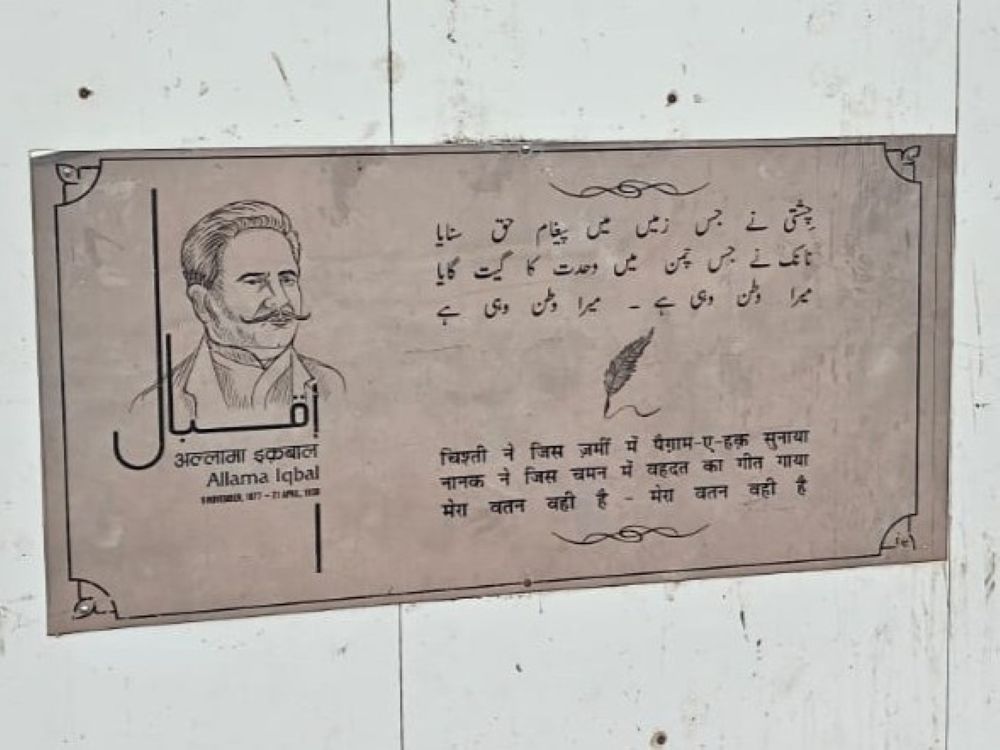 اقبال
अल्लामा इक़बाल
Allama Iqbal
9 NOVEMBER, 1877 – 21 APRIL, 1938
چشتی نے جس زمیں میں پیغام حق سنایا
نانک نے جس چمن میں وحدت کا گیت گایا
میرا وطن وہی ہے - میرا وطن وہی ہے
चिश्ती ने जिस ज़मीं में पैग़ाम-ए-हक़ सुनाया
नानक ने जिस चमन में वहदत का गीत गाया
मेरा वतन वही है - मेरा वतन वही है